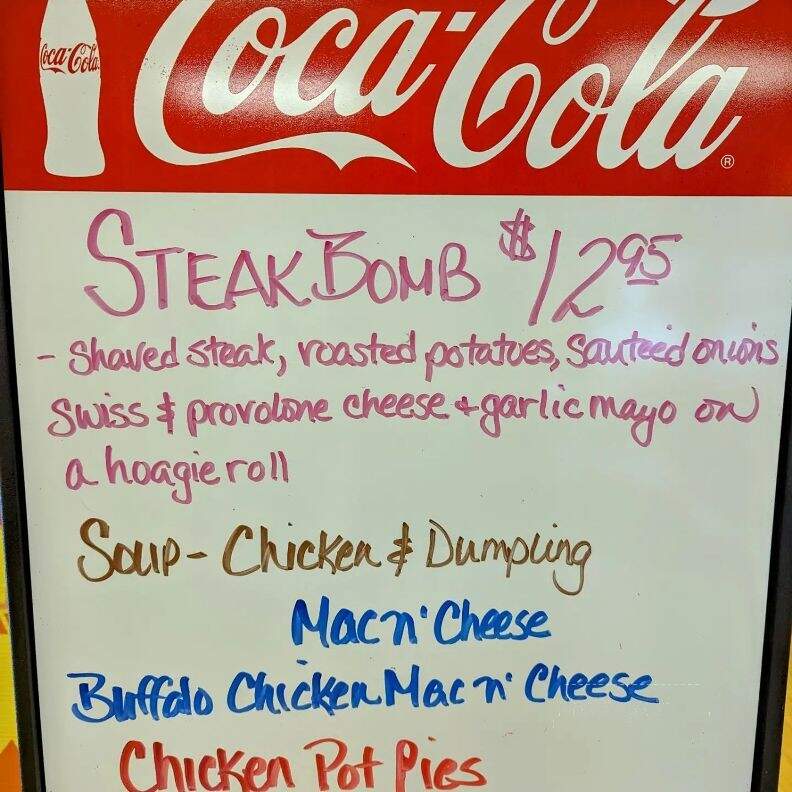 Coca-Cola
Coca-Cola®
STEAK BOMB $12.95
- Shaved steak, roasted potatoes, Sauteed onions
Swiss & provolone cheese + garlic mayo on
a hoagie roll
Soup - Chicken & Dumpling
Mac n' Cheese
Buffalo Chicken Mac n' Cheese
Chicken Pot Pies